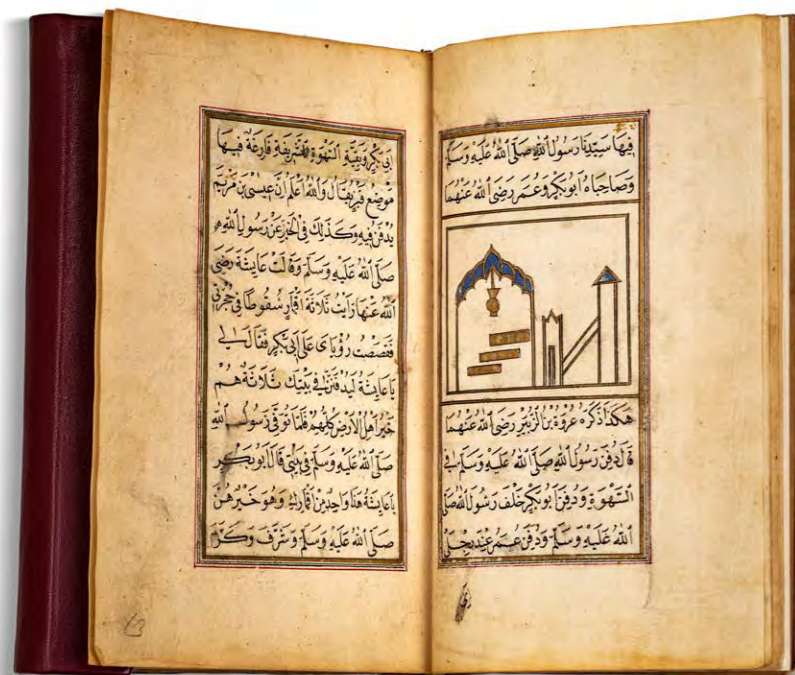 فِيهَا سَيِّدُنَا رَسُولُ اللَّهِ صَلَّى اللَّهُ عَلَيْهِ وَسَلَّمَ
وَصَاحِبَاهُ اَبُو بَكْرٍ وَعُمَرُ رَضِيَ اللَّهُ عَنْهُمَا
هٰكَذَا ذَكَرَهُ عُرْوَةُ بْنُ الزُّبَيْرِ رَضِيَ اللَّهُ عَنْهُمَا
قَالَ دُفِنَ رَسُولُ اللَّهِ صَلَّى اللَّهُ عَلَيْهِ وَسَلَّمَ فِي
السَّهْوَةِ وَدُفِنَ اَبُو بَكْرٍ خَلْفَ رَسُولِ اللَّهِ صَلَّى
اللَّهُ عَلَيْهِ وَسَلَّمَ وَدُفِنَ عُمَرُ عِنْدَ رِجْلَيْ
اَبِي بَكْرٍ وَبَقِيَّةُ السَّهْوَةِ الشَّرِيفَةِ فَارِغَةٌ فِيهَا
مَوْضِعُ قَبْرٍ يُقَالُ وَاللَّهُ اَعْلَمُ اِنَّ عِيسَى بْنَ مَرْيَمَ
يُدْفَنُ فِيهِ وَكَذٰلِكَ فِي الْخَبَرِ عَنْ رَسُولِ اللَّهِ
صَلَّى اللَّهُ عَلَيْهِ وَسَلَّمَ وَقَالَتْ عَايِشَةُ رَضِيَ
اللَّهُ عَنْهَا رَاَيْتُ ثَلَاثَةَ اَقْمَارٍ سُقُوطًا فِي حُجْرَتِي
فَقَصَصْتُ رُؤْيَايَ عَلَى اَبِي بَكْرٍ فَقَالَ لِي
يَا عَايِشَةُ لَيُدْفَنَنَّ فِي بَيْتِكِ ثَلَاثَةٌ هُمْ
خَيْرُ اَهْلِ الْاَرْضِ كُلِّهِمْ فَلَمَّا تُوُفِّيَ رَسُولُ اللَّهِ
صَلَّى اللَّهُ عَلَيْهِ وَسَلَّمَ فِي بَيْتِي قَالَ اَبُو بَكْرٍ
يَا عَايِشَةُ هٰذَا وَاحِدٌ مِنْ اَقْمَارِكِ وَهُوَ خَيْرُهُنَّ
صَلَّى اللَّهُ عَلَيْهِ وَسَلَّمَ وَشَرَّفَ وَكَرَّمَ